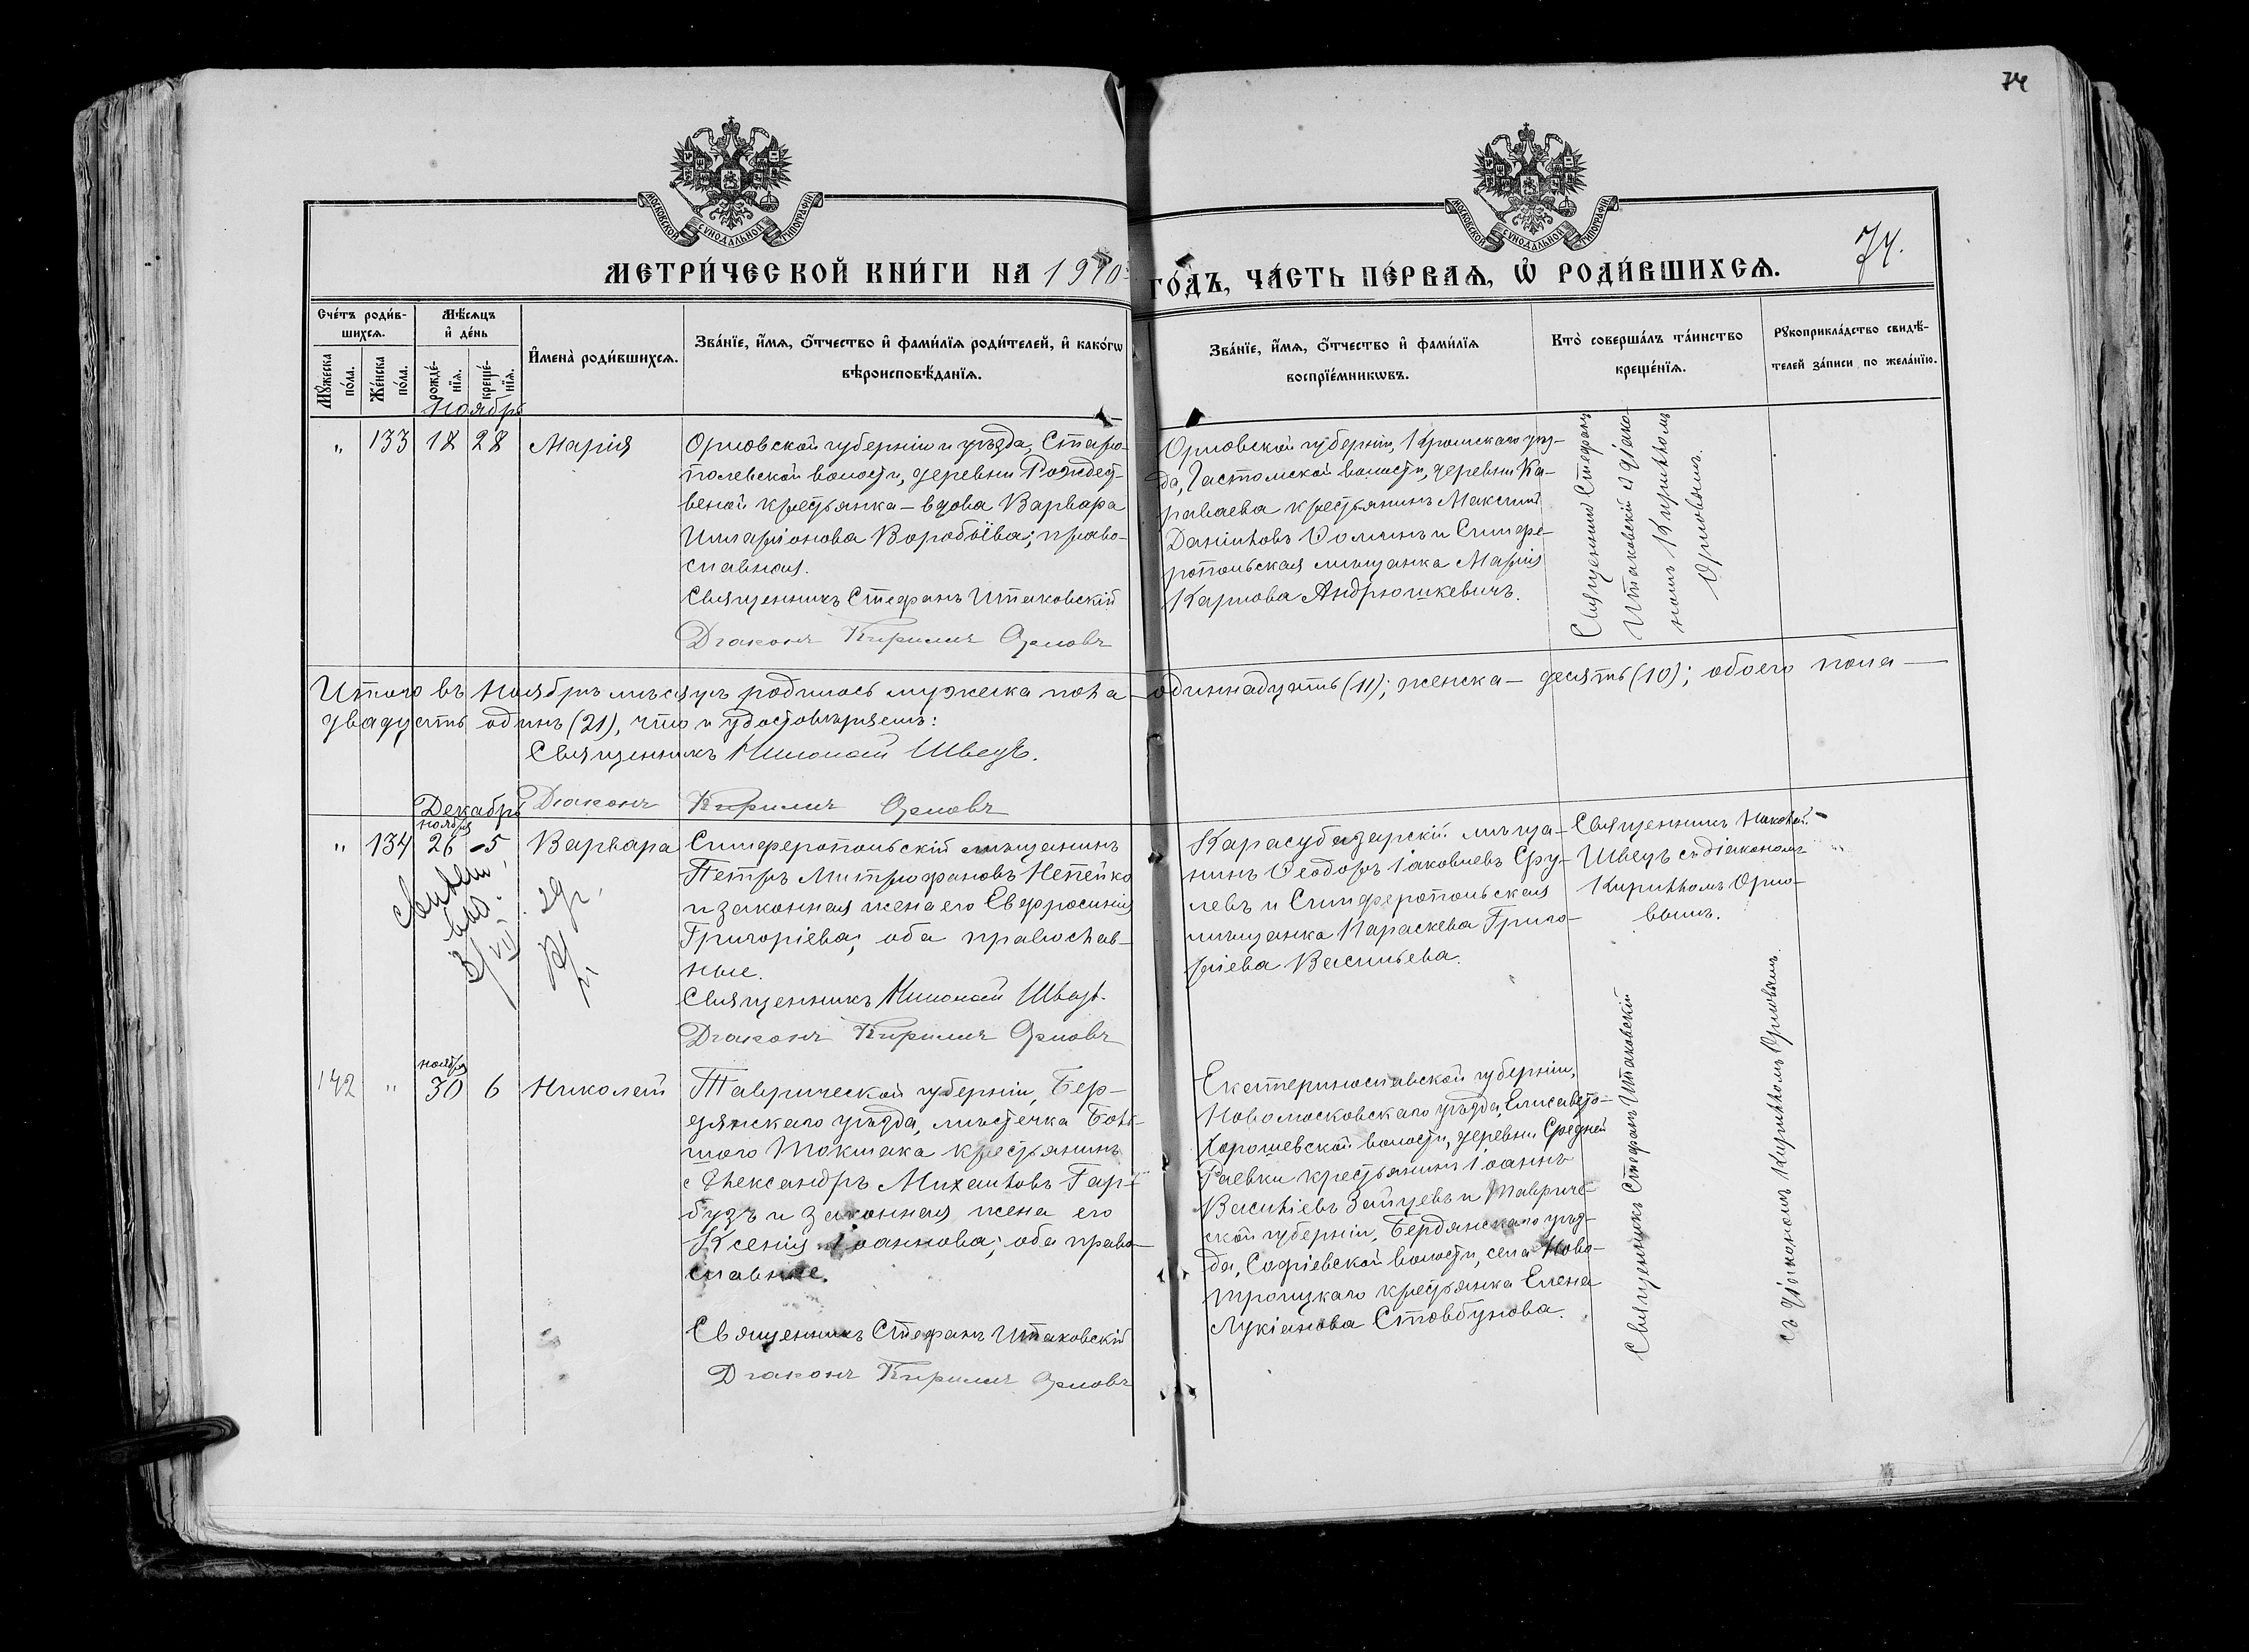 74
МОСКОВСКОЙ СѴНОДАЛЬНОЙ ТИПОГРАФІИ
МОСКОВСКОЙ СѴНОДАЛЬНОЙ ТИПОГРАФІИ
МЕТРИ́ЧЕСКОЙ КНИ́ГИ НА 1910
ГО́ДЪ, ЧА́СТЬ ПЕ́РВАѦ, Ѡ҆ РОДИ́ВШИХСѦ.
74.
Сче́тъ роди́в-
шихсѧ.
Мѣ́сѧцъ
и҆ де́нь
Мꙋ́жеска
по́ла.
Же́нска
по́ла.
рожде́-
нїѧ.
креще́-
нїѧ.
И҆мена̀ роди́вшихсѧ.
Зва́нїе, и҆́мѧ, ѻ҆́тчество и҆ фами́лїѧ роди́телей, и҆ како́гѡ
вѣроисповѣ́данїѧ.
Зва́нїе, и҆́мѧ, ѻ҆́тчество и҆ фами́лїѧ
воспрїе́мникѡвъ.
Кто̀ соверша́лъ та́инство
креще́нїѧ.
Рꙋкоприкла́дство свидѣ́-
телей за́писи по жела́нїю.
Ноябрь
" 133 18 28 Марія
Орловской губерніи и уѣзда, Старо-
полевской волости, деревни Рождест-
веной крестьянка - вдова Варвара
Иларіонова Воробьёва; право-
славная.
Священникъ Стефанъ Итаковскій
Діаконъ Кириллъ Орловъ
Орловской губерніи, Кромскаго уѣз-
да, Гастомской волости, деревни Ка-
раваева крестьянинъ Максимъ
Даніиловъ Ѳоминъ и Симфе-
ропольская мѣщанка Марія
Карпова Андрюшкевичъ.
Священникъ Стефанъ
Итаковскій с діако-
номъ Кирилломъ
Орловымъ.
Итого въ Ноябрѣ мѣсяцѣ родилось мужеска пола - одиннадцать (11); женска - десять (10); обоего пола -
двадцать одинъ (21), что и удостовѣряемъ:
Священникъ Николай Швецъ.
Діаконъ Кириллъ Орловъ
Декабрь
ноября
" 134 26 5 Варвара
Симферопольскій мѣщанинъ
Петръ Митрофановъ Непейко
и законная жена его Евфросинія
Григоріева; оба православ-
ные.
Священникъ Николай Швецъ.
Діаконъ Кириллъ Орловъ
Карасубазарскій мѣща-
нинъ Ѳеодоръ Іаковлевъ Сру-
левъ и Симферопольская
мѣщанка Параскева Григо-
ріева Васильева.
Священникъ Николай
Швецъ съ діакономъ
Кирилломъ Орло-
вымъ.
ноября
142 " 30 6 Николай
Таврической губерніи, Бер-
дянскаго уѣзда, мѣстечка Боль-
шого Токмака крестьянинъ
Александръ Михаиловъ Гар-
бузъ и законная жена его
Ксенія Іоаннова; оба право-
славные.
Священникъ Стефанъ Итаковскій
Діаконъ Кириллъ Орловъ
Екатеринославской губерніи,
Новомосковскаго уѣзда, Елисавето-
Хорошевской волости, деревни Средней
Раевки крестьянинъ Іоаннъ
Василіевъ Зайцевъ и Тавриче-
ской губерніи, Бердянскаго уѣз-
да, Софіевской волости, села Ново-
троицкаго крестьянка Елена
Лукіанова Стовбунова.
Священникъ Стефанъ Итаковскій
съ діакономъ Кирилломъ Орловымъ.